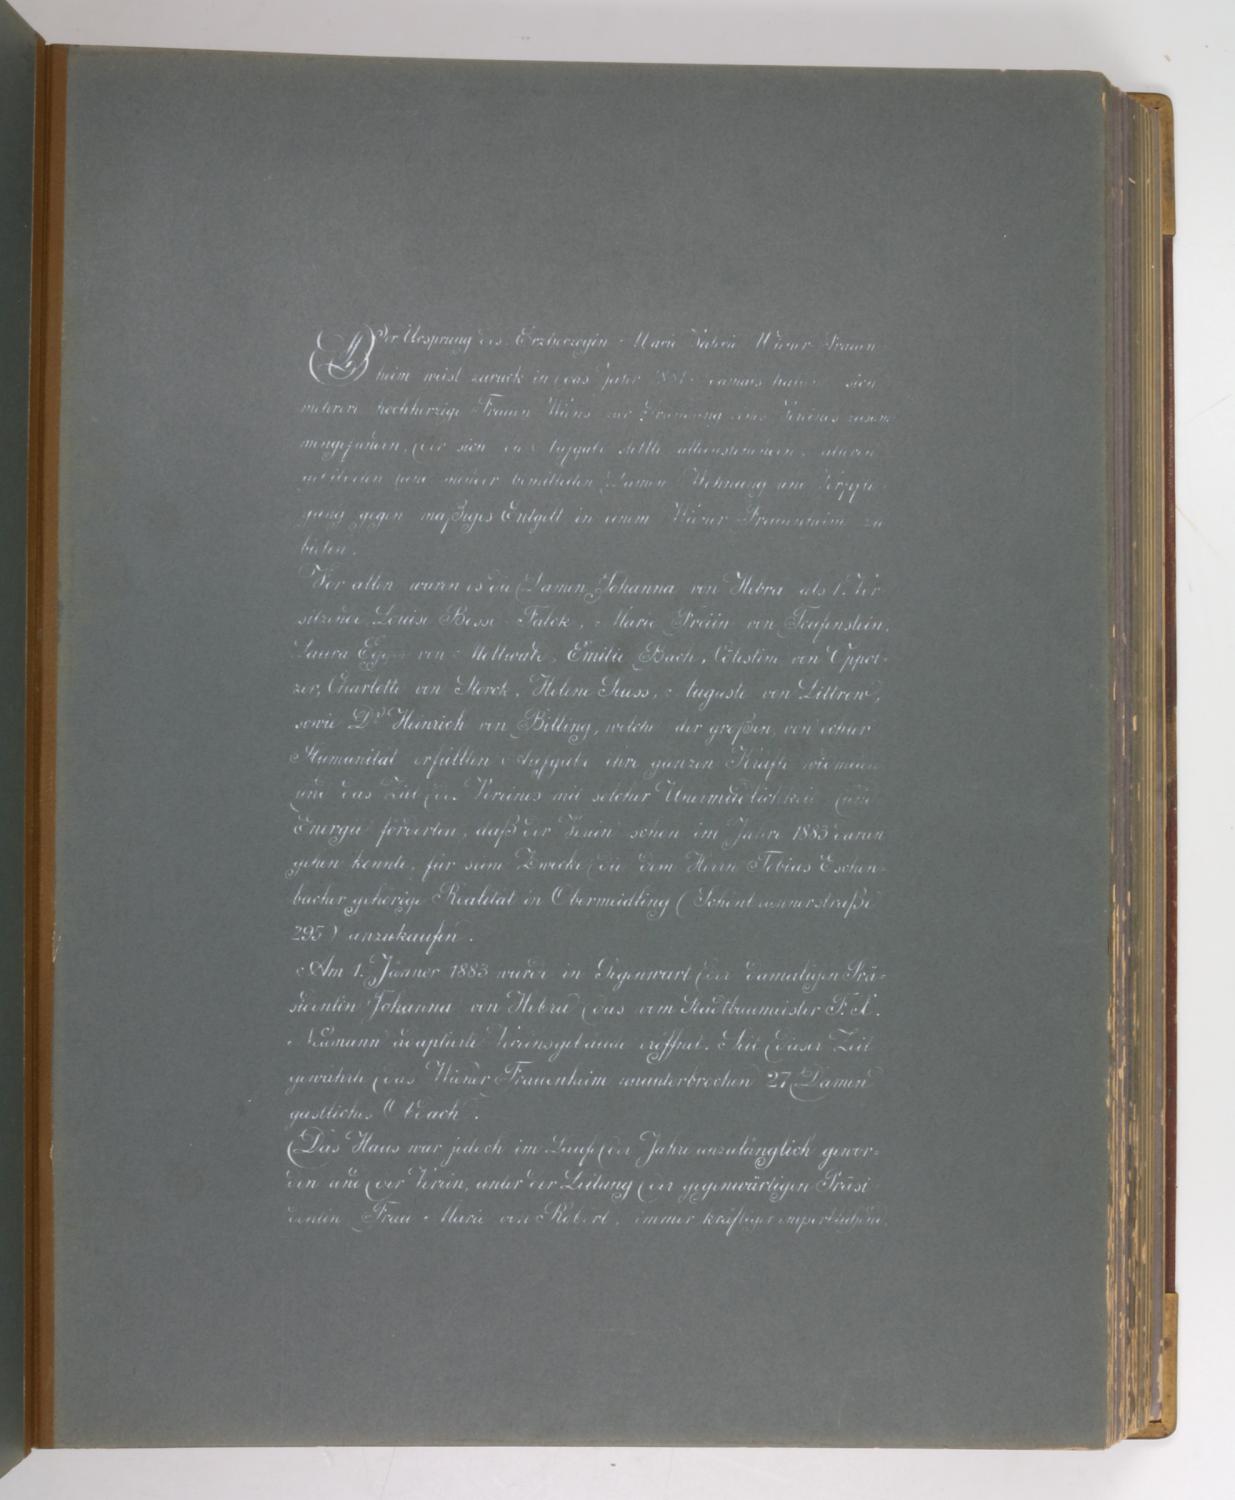 Der Ursprung des Erzherzogin Marie Valerie Wiener Frauen
heim weist zurück in das Jahr 1881. Damals haben sich
mehrere hochherzige Frauen Wiens zur Gründung eines Vereines zusam
mengefunden, der sich die Aufgabe stellte alleinstehenden, älteren
gebildeten und minder bemittelten Damen Wohnung und Verpfle
gung gegen mäßiges Entgelt in einem Wiener Frauenheim zu
bieten.
Vor allen waren es die Damen Johanna von Hebra als 1. Vor
sitzende, Louise Bosse Falck, Marie Freiin von Teufenstein,
Laura von Mollwald, Emilie Bach, Cölestine von Oppol-
zer, Charlotte von Störck, Helene Suess, Auguste von Littrow,
sowie Dr Heinrich von Billing, welche der großen, von echter
Humanität erfüllten Aufgabe ihre ganzen Kräfte widmeten
und das Ziel des Vereines mit solcher Unermüdlichkeit und
Energie förderten, daß der Verein schon im Jahre 1883 daran
gehen konnte, für seine Zwecke die dem Herrn Tobias Eschen-
bacher gehörige Realität in Obermeidling (Schönbrunnerstraße
295) anzukaufen.
Am 1. Jänner 1883 wurde in Gegenwart der damaligen Prä-
sidentin Johanna von Hebra das vom Stadtbaumeister F. X.
Neumann adaptierte Vereinsgebäude eröffnet. Seit dieser Zeit
gewährte das Wiener Frauenheim ununterbrochen 27 Damen
gastliches Obdach.
Das Haus war jedoch im Laufe der Jahre unzulänglich gewor-
den und der Verein, unter der Leitung der gegenwärtigen Präsi
dentin Frau Marie von Robert, immer kräftiger emporblühend,